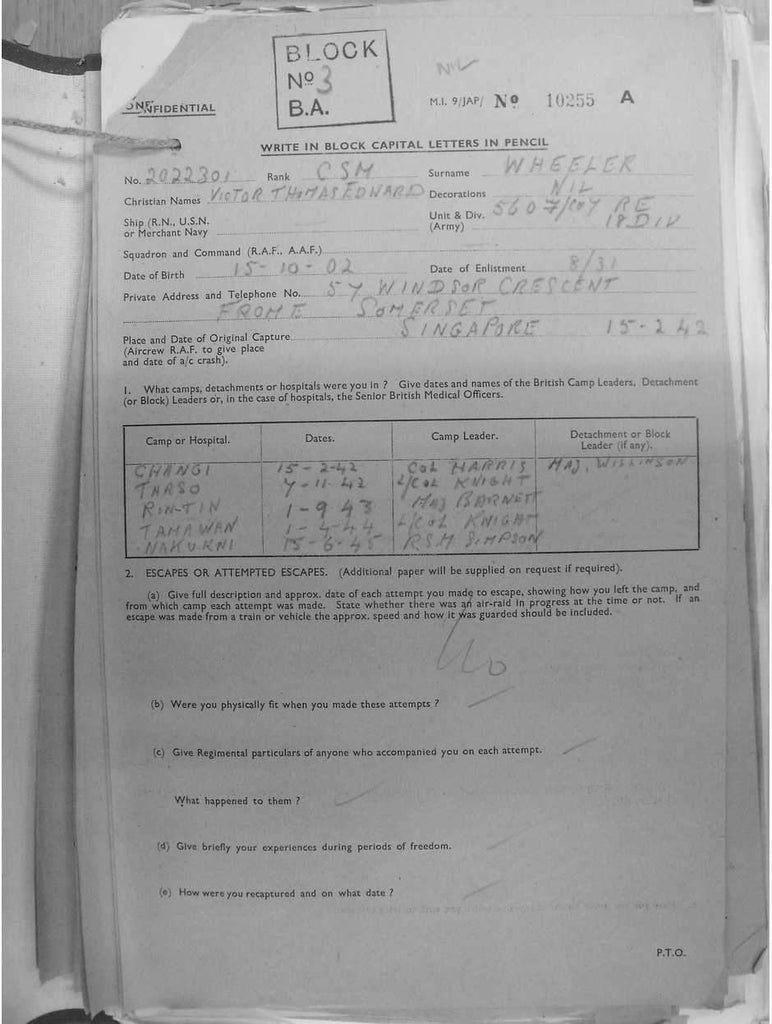 BLOCK
Nº 3
B.A.
NIL
CONFIDENTIAL
M.I. 9/JAP/ Nº 10255 A
WRITE IN BLOCK CAPITAL LETTERS IN PENCIL
No. 2022301 Rank CSM Surname WHEELER
Christian Names VICTOR THOMAS EDWARD Decorations NIL
Ship (R.N., U.S.N. or Merchant Navy Unit & Div. (Army) 560 7/COY RE 18 DIV
Squadron and Command (R.A.F., A.A.F.)
Date of Birth 15-10-02 Date of Enlistment 8/31
Private Address and Telephone No. 57 WINDSOR CRESCENT
FROME SOMERSET
Place and Date of Original Capture SINGAPORE 15-2 42
(Aircrew R.A.F. to give place
and date of a/c crash).
1. What camps, detachments or hospitals were you in ? Give dates and names of the British Camp Leaders, Detachment
(or Block) Leaders or, in the case of hospitals, the Senior British Medical Officers.
Camp or Hospital. Dates. Camp Leader. Detachment or Block Leader (if any).
CHANGI 15-2-42 COL HARRIS MAJ. WILKINSON
TARSO 7-11-42 L/COL KNIGHT
RIN-TIN 1-9 43 MAJ BARNETT
TAMAWAN 1-4-44 L/COL KNIGHT
NAKURNI 15-6-45 RSM SIMPSON
2. ESCAPES OR ATTEMPTED ESCAPES. (Additional paper will be supplied on request if required).
(a) Give full description and approx. date of each attempt you made to escape, showing how you left the camp, and
from which camp each attempt was made. State whether there was an air-raid in progress at the time or not. If an
escape was made from a train or vehicle the approx. speed and how it was guarded should be included.
No
(b) Were you physically fit when you made these attempts ?
(c) Give Regimental particulars of anyone who accompanied you on each attempt.
What happened to them ?
(d) Give briefly your experiences during periods of freedom.
(e) How were you recaptured and on what date ?
P.T.O.